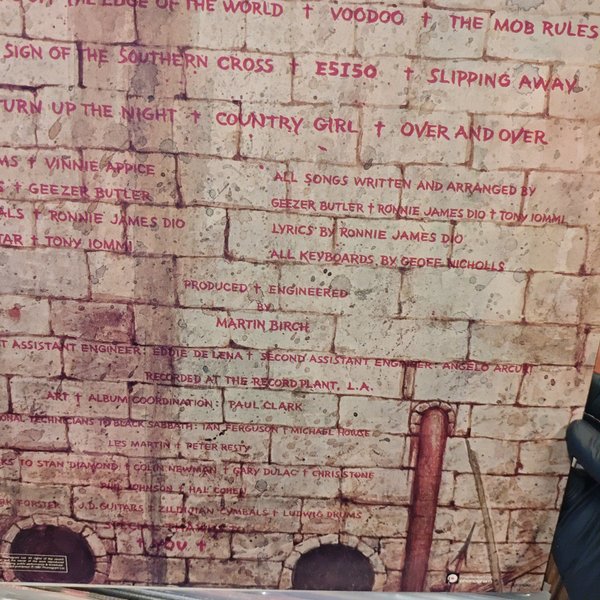 THE EDGE OF THE WORLD † VOODOO † THE MOB RULES
SIGN OF THE SOUTHERN CROSS † E5150 † SLIPPING AWAY
TURN UP THE NIGHT † COUNTRY GIRL † OVER AND OVER
MS † VINNIE APPICE
S † GEEZER BUTLER
ALS † RONNIE JAMES DIO
TAR † TONY IOMMI
ALL SONGS WRITTEN AND ARRANGED BY
GEEZER BUTLER † RONNIE JAMES DIO † TONY IOMMI
LYRICS BY RONNIE JAMES DIO
ALL KEYBOARDS BY GEOFF NICHOLLS
PRODUCED † ENGINEERED
BY
MARTIN BIRCH
T ASSISTANT ENGINEER: EDDIE DE LENA † SECOND ASSISTANT ENGINEER: ANGELO ARCURI
RECORDED AT THE RECORD PLANT, L.A.
ART † ALBUM COORDINATION: PAUL CLARK
ONAL TECHNICIANS TO BLACK SABBATH: IAN FERGUSON † MICHAEL HOWSE
LES MARTIN † PETER RESTY
KS TO STAN DIAMOND † COLIN NEWMAN † GARY DULAC † CHRIS STONE
PHIL JOHNSON † HAL COHEN
FORSTER † J.D. GUITARS † ZILDJIAN CYMBALS † LUDWIG DRUMS
† YOU †
phonogram